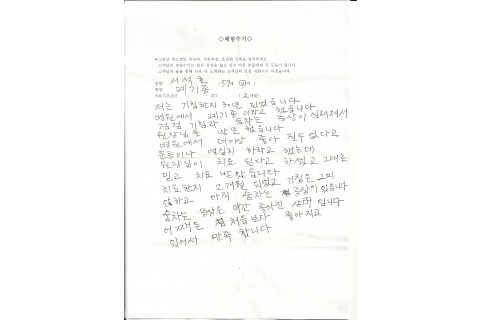 ◇체험수기◇
성명: 서석호 (57세 남)
병명: 폐기종
치료기간 ( 2개월)
저는 기침한지 30년 되었습니다
병원에서 폐기종 이라고 했습니다
점점 기침과 숨차는 증상이 심해져서
원장님을 찾은 했습니다
병원에서 더이상 좋아 진수 없다고
운동이나 열심히 하라고 했는데
원장님이 치료 된다고 하셨고 그래도
믿고 치료 받았습니다
치료한지 2개월 되었고 기침은 거의
안하고 아직 숨차는 증상이 있습니다
숨차는 증상은 약간 좋아진 상태 입니다
어쨌든 처음보다 좋아지고
있어서 만족 합니다